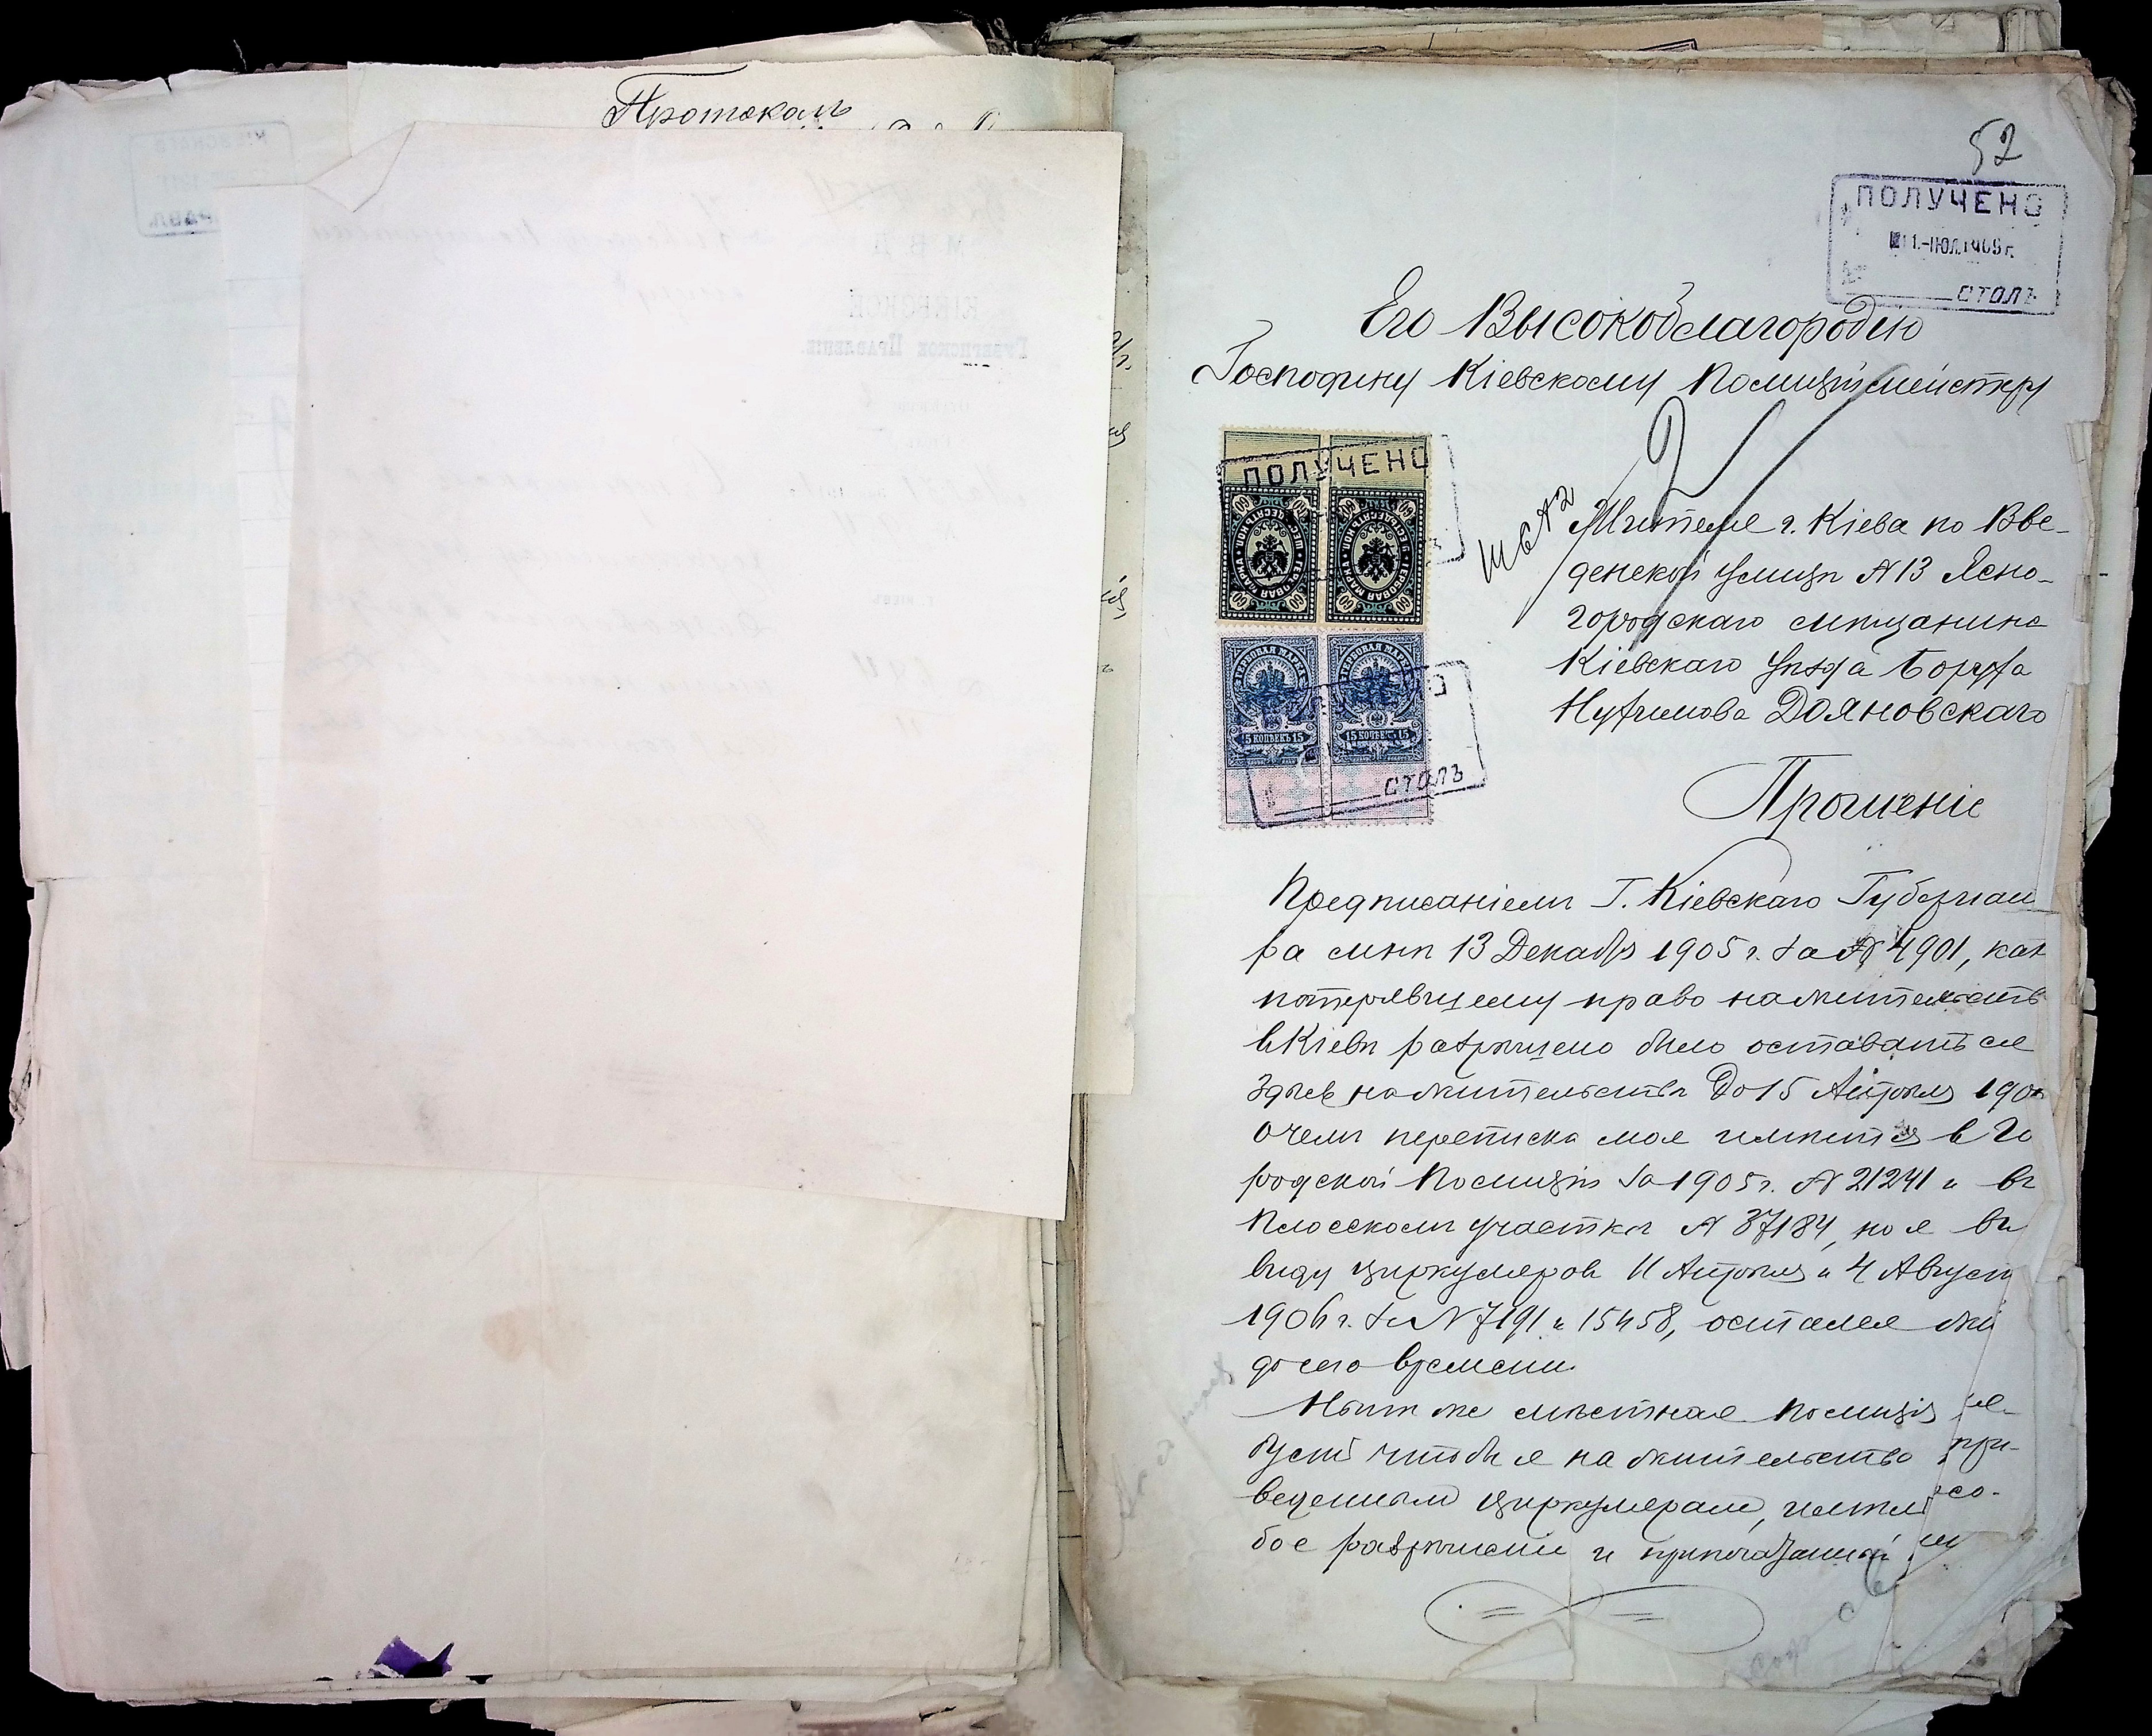 Протоколъ
52
ПОЛУЧЕНО
СТОЛЪ
Его Высокоблагородію
Господину Кіевскому Полиціймейстеру
ПОЛУЧЕНО
60 60
ГЕРБОВАЯ МАРКА
15 КОПѢЕКЪ 15
15 КОПѢЕКЪ 15
СТОЛЪ
Жителя г. Кіева по Вве-
денской улицѣ № 13 Ясно-
городскаго мѣщанина
Кіевскаго уѣзда Боруха
Нухимова Дояновскаго
Прошеніе
Предписаніемъ Г. Кіевскаго Губернат
ра мнѣ 13 Декабря 1905 г. за № 4901, как
потерявшему право на жительств
в Кіевѣ разрѣшено было оставаться
здѣсь на жительствѣ до 15 Апрѣля 190
о чемъ переписка моя имѣится в Го
родской Полиціи за 1905 г. № 21241 и въ
Плосскомъ участкѣ № 37184, но я въ
виду циркуляров 11 Апрѣля и 4 Август
1906 г. за № 7191 и 15458, остался
до сего времени.
Нынѣ же мѣстная полиція
буетъ чтобы я на жительство при-
веденнымъ циркулярам, имѣлъ осо-
бое разрѣшеніе и